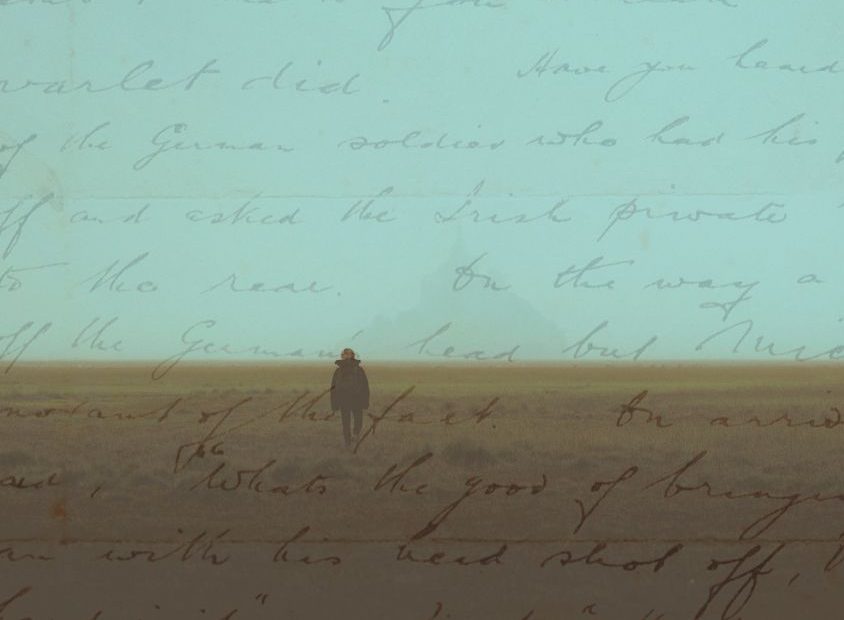 varlet did. Have you heard
of the German soldier who had his
off and asked the Irish private
to the rear. On the way a
off the German's head but Mic
norant of the fact. On arriv
aid, "Whats the good of bringin
an with his head shot off,